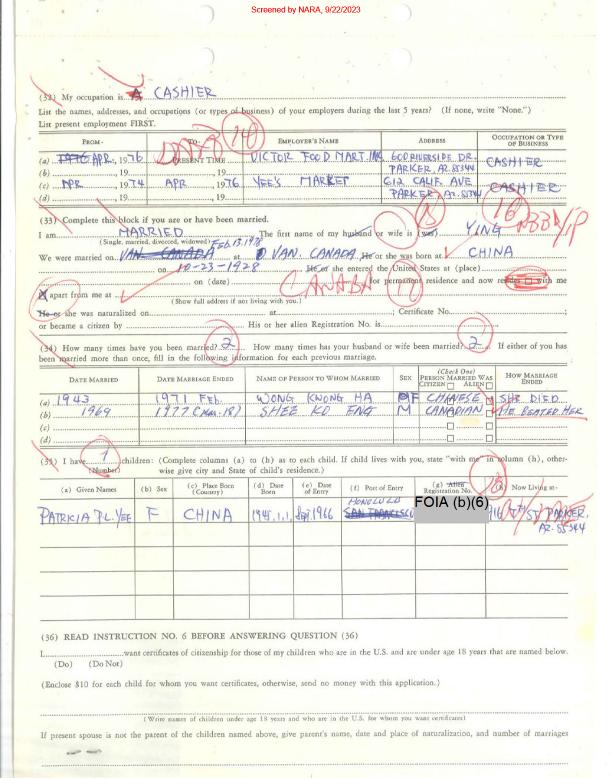 Screened by NARA, 9/22/2023
(32) My occupation is A CASHIER
List the names, addresses, and occupations (or types of business) of your employers during the last 5 years? (If none, write "None.")
List present employment FIRST.
FROM- TO- EMPLOYER'S NAME ADDRESS OCCUPATION OR TYPE OF BUSINESS
(a) APR., 1976 PRESENT TIME VICTOR FOOD MART. INC 600 RIVERSIDE DR. PARKER, AZ. 85344 CASHIER
(b) , 19 , 19
(c) APR , 1974 APR , 1976 YEE'S MARKET 612 CALIF. AVE PARKER, AZ. 85344 CASHIER
(d) , 19 , 19
(33) Complete this block if you are or have been married.
I am MARRIED The first name of my husband or wife is (was) YING
(Single, married, divorced, widowed)
We were married on Feb. 13, 1978 at VAN. CANADA He or she was born at CHINA
on 10-23-1928 He or she entered the United States at (place)
on (date) CANADA for permanent residence and now resides with me
X apart from me at
(Show full address if not living with you.)
He or she was naturalized on at ; Certificate No. ;
or became a citizen by His or her alien Registration No. is
(34) How many times have you been married? 2 How many times has your husband or wife been married? 2 If either of you has
been married more than once, fill in the following information for each previous marriage.
DATE MARRIED DATE MARRIAGE ENDED NAME OF PERSON TO WHOM MARRIED SEX (Check One) PERSON MARRIED WAS CITIZEN ALIEN HOW MARRIAGE ENDED
(a) 1943 1971 Feb. WONG KWONG HA F CHINESE SHE DIED
(b) 1969 1977 (Mar. 18) SHEE KO ENG M CANADIAN HE BEATED HER
(c)
(d)
(35) I have 1 children: (Complete columns (a) to (h) as to each child. If child lives with you, state "with me" in column (h), other-
(Number)
wise give city and State of child's residence.)
(a) Given Names (b) Sex (c) Place Born (Country) (d) Date Born (e) Date of Entry (f) Port of Entry (g) Alien Registration No. (h) Now Living at-
PATRICIA P.L. YEE F CHINA 1945.1.1. Sept. 1966 HONOLULU SAN FRANCISCO FOIA (b)(6) ST. PARKER, AZ. 85344
(36) READ INSTRUCTION NO. 6 BEFORE ANSWERING QUESTION (36)
I want certificates of citizenship for those of my children who are in the U.S. and are under age 18 years that are named below.
(Do) (Do Not)
(Enclose $10 for each child for whom you want certificates, otherwise, send no money with this application.)
(Write names of children under age 18 years and who are in the U.S. for whom you want certificates)
If present spouse is not the parent of the children named above, give parent's name, date and place of naturalization, and number of marriages